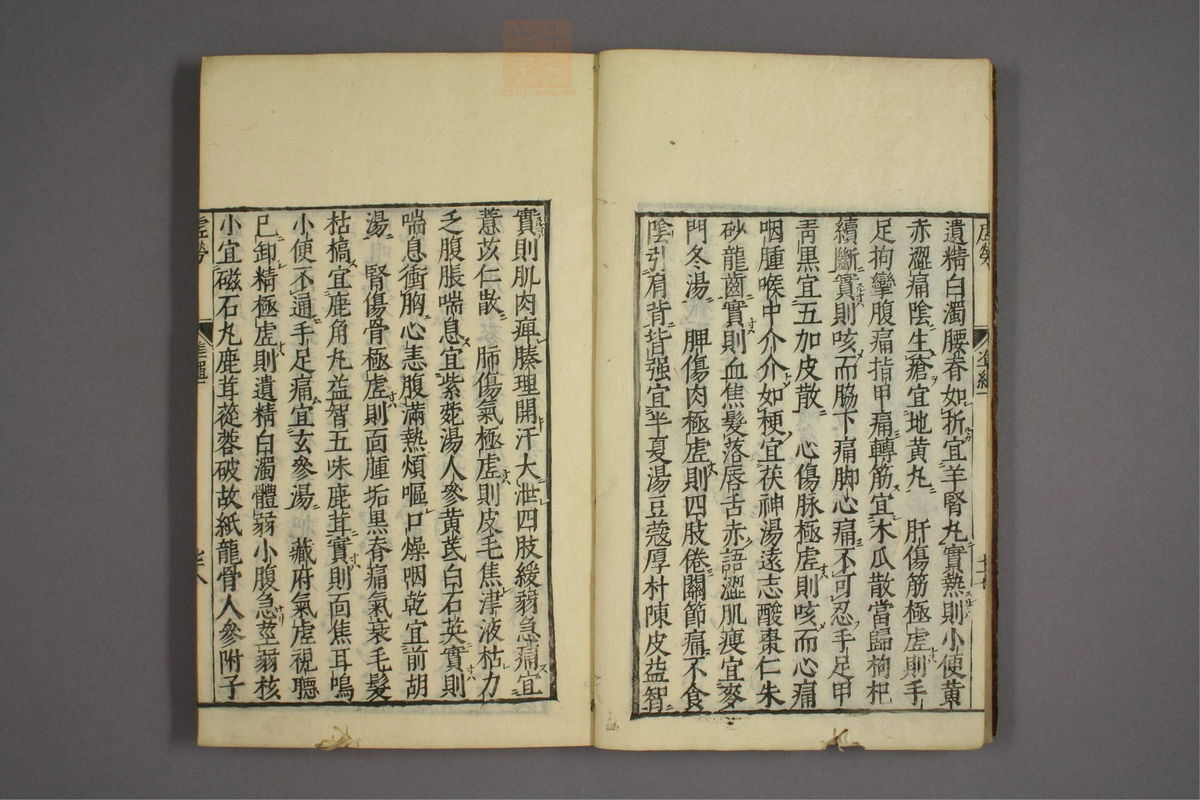 遺精白濁腰脊如折宜羊腎丸實熱則小便黄
赤澀痛陰生瘡宜地黄丸　肝傷筋極虚則手
足拘攣腹痛指甲痛轉筋宜木瓜散當歸枸杞
續斷實則咳而脇下痛脚心痛不可忍手足甲
青黒宜五加皮散　心傷脉極虚則咳而心痛
咽腫喉中介介如梗宜茯神湯遠志酸棗仁朱
砂龍齒實則血焦髮落唇舌赤語澀肌瘦宜麥
門冬湯　脾傷肉極虚則四肢倦關節痛不食
陰引肩背皆强宜半夏湯豆蔻厚朴陳皮益智
實則肌肉痺腠理開汗大泄四肢緩弱急痛宜
薏苡仁散　肺傷氣極虚則皮毛焦津液枯力
乏腹脹喘息宜紫菀湯人參黄芪白石英實則
喘息衝胸心恚腹滿熱煩嘔口燥咽乾宜前胡
湯　腎傷骨極虚則面腫垢黒脊痛氣衰毛髮
枯槁宜鹿角丸益智五味鹿茸實則面焦耳鳴
小便不通手足痛宜玄參湯　藏府氣虚視聽
已卸精極虚則遺精白濁體弱小腹急莖弱核
小宜磁石丸鹿茸蓯蓉破故紙龍骨人參附子
虚勞